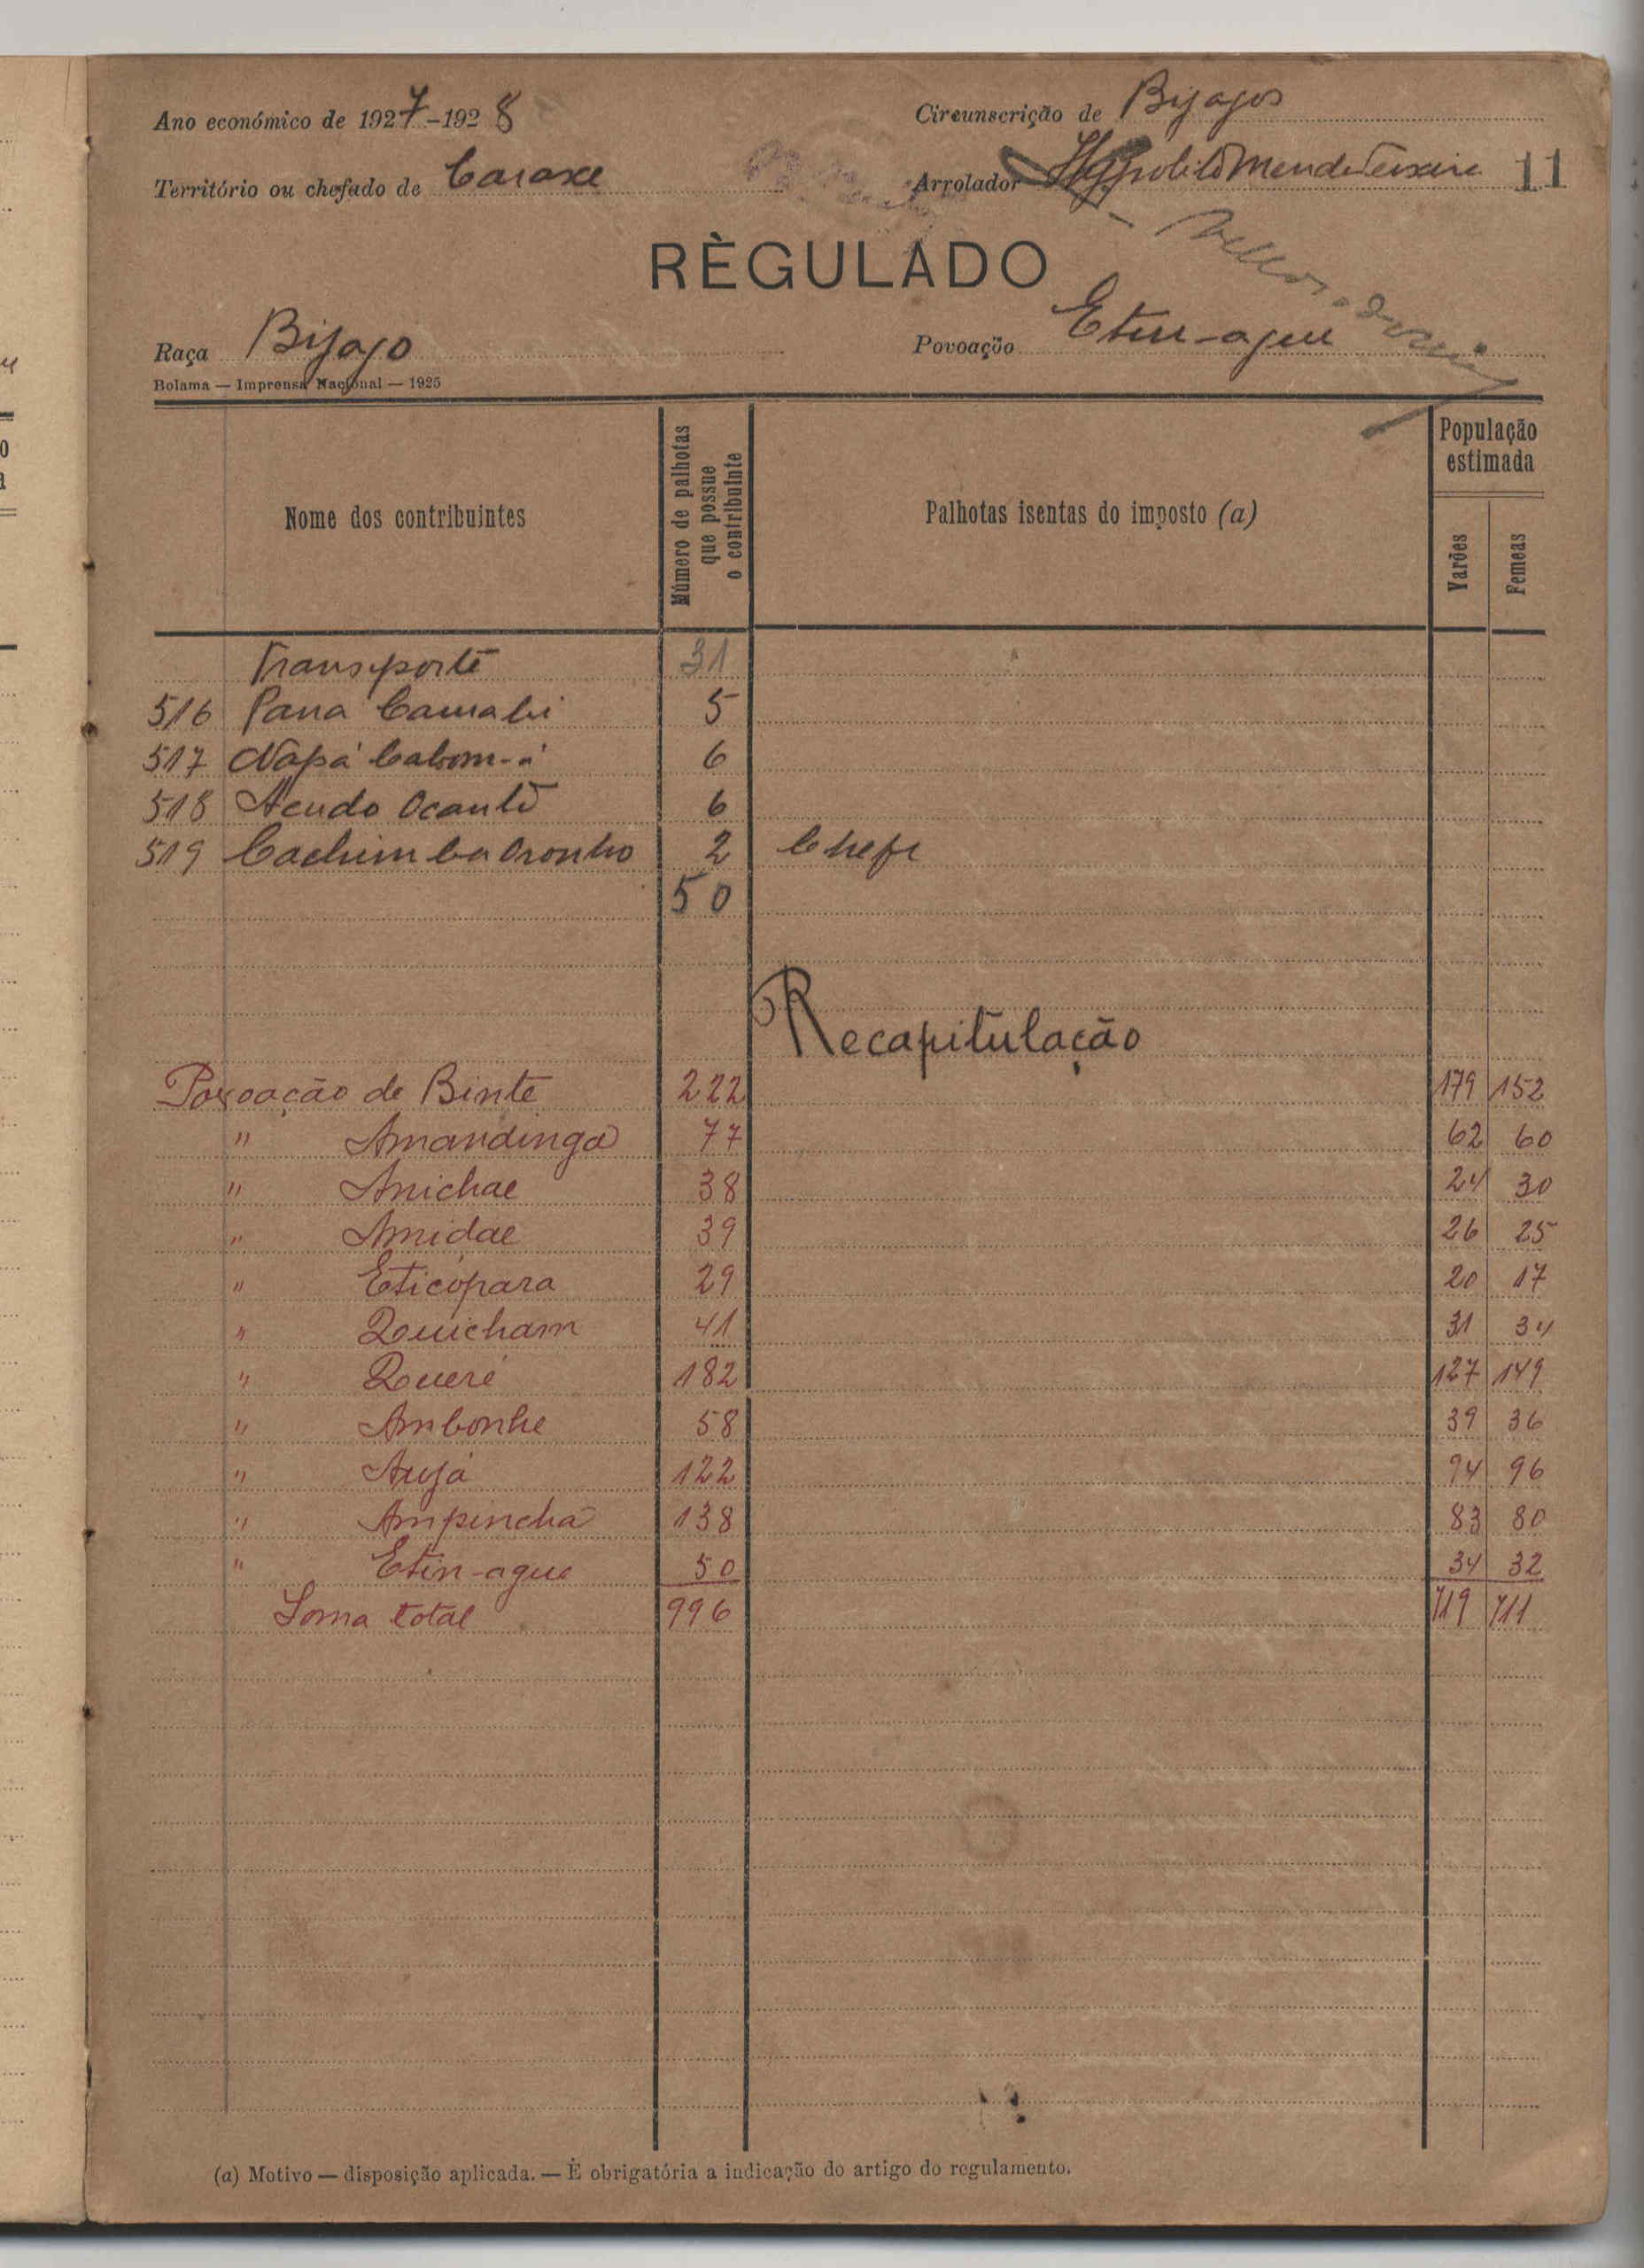 Ano económico de 1927-1928
Circunscrição de Bijagos
Território ou chefado de Caraxe
Arrolador Hyppolito Mende Teixeira 11
RÈGULADO
Raça Bijago
Povoação Etin-ague
Bolama — Imprensa Nacional — 1925
Nome dos contribuintes
Número de palhotas que possue o contribuinte
Palhotas isentas do imposto (a)
População estimada
Varões
Femeas
Transporte 31
516 Pana Camabi 5
517 Napá Cabom-á 6
518 Acudo Ocantó 6
519 Cachimba Oronho 2 Chefe
50
Recapitulação
Povoação de Binte 222 179 152
" Amandinga 77 62 60
" Anichae 38 24 30
" Amidae 39 26 25
" Eticópara 29 20 17
" Quicham 41 31 34
" Queré 182 127 149
" Ambonhe 58 39 36
" Aujá 122 94 96
" Ampincha 138 83 80
" Etin-ague 50 34 32
Soma total 996 719 711
(a) Motivo — disposição aplicada. — È obrigatória a indicação do artigo do regulamento.